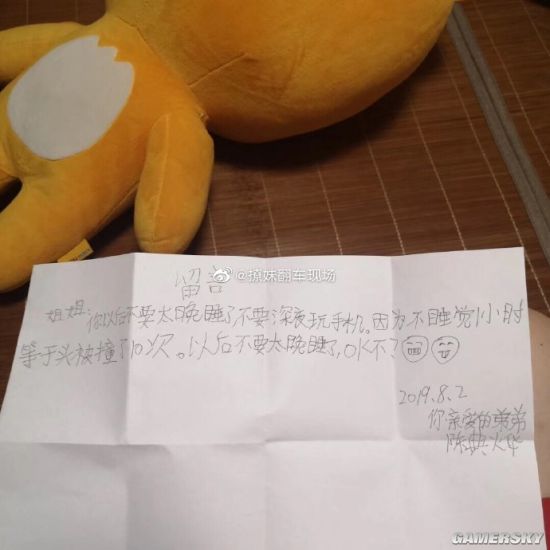 @撩妹翻车现场
留言
姐姐,你以后不要太晚睡了不要深夜玩手机。因为不睡觉1小时
等于头被撞了10次。以后不要太晚睡了,OK不?
2019.8.2
你亲爱的弟弟
陈典
GAMERSKY